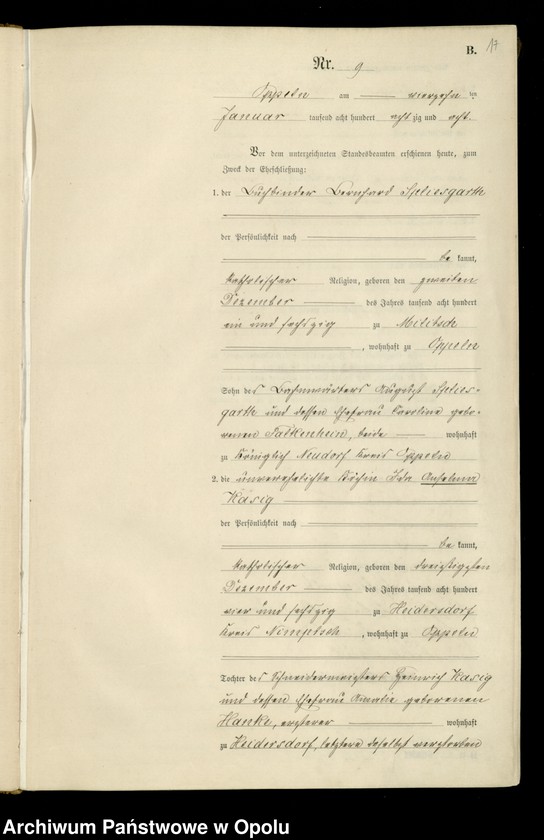 B. 17
Nr. 9
Oppeln am vierzehn ten
Januar tausend acht hundert acht zig und acht.
Vor dem unterzeichneten Standesbeamten erschienen heute, zum
Zweck der Eheschließung:
1. der Buchbinder Bernhard Spliesgarth
der Persönlichkeit nach
be kannt,
katholischer Religion, geboren den zweiten
Dezember des Jahres tausend acht hundert
ein und sechszig zu Militsch
, wohnhaft zu Oppeln
Sohn des Bahnwärters August Splies-
garth und dessen Ehefrau Caroline gebo-
renen Falkenhein, beide wohnhaft
zu Königlich Neudorf Kreis Oppeln
2. die unverehelichte Köchin Ida Anselma
Käsig
der Persönlichkeit nach
be kannt,
katholischer Religion, geboren den dreißigsten
Dezember des Jahres tausend acht hundert
vier und sechszig zu Heidersdorf
Kreis Nimptsch, wohnhaft zu Oppeln
Tochter des Schneidermeisters Heinrich Käsig
und dessen Ehefrau Amalie geborenen
Hanke, ersterer wohnhaft
zu Heidersdorf, letztere daselbst verstorben
Archiwum Państwowe w Opolu